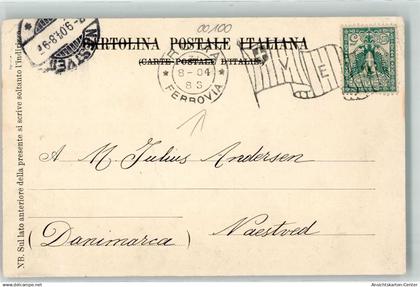 00100
CARTOLINA POSTALE ITALIANA
(CARTE POSTALE D'ITALIE)
NÆSTVED
8-04
8 S
* FERROVIA *
V E
NB. Sul lato anteriore della presente si scrive soltanto l'indirizzo
A M. Julius Andersen
Naestved
(Danimarca)
Ansichtskarten-Center